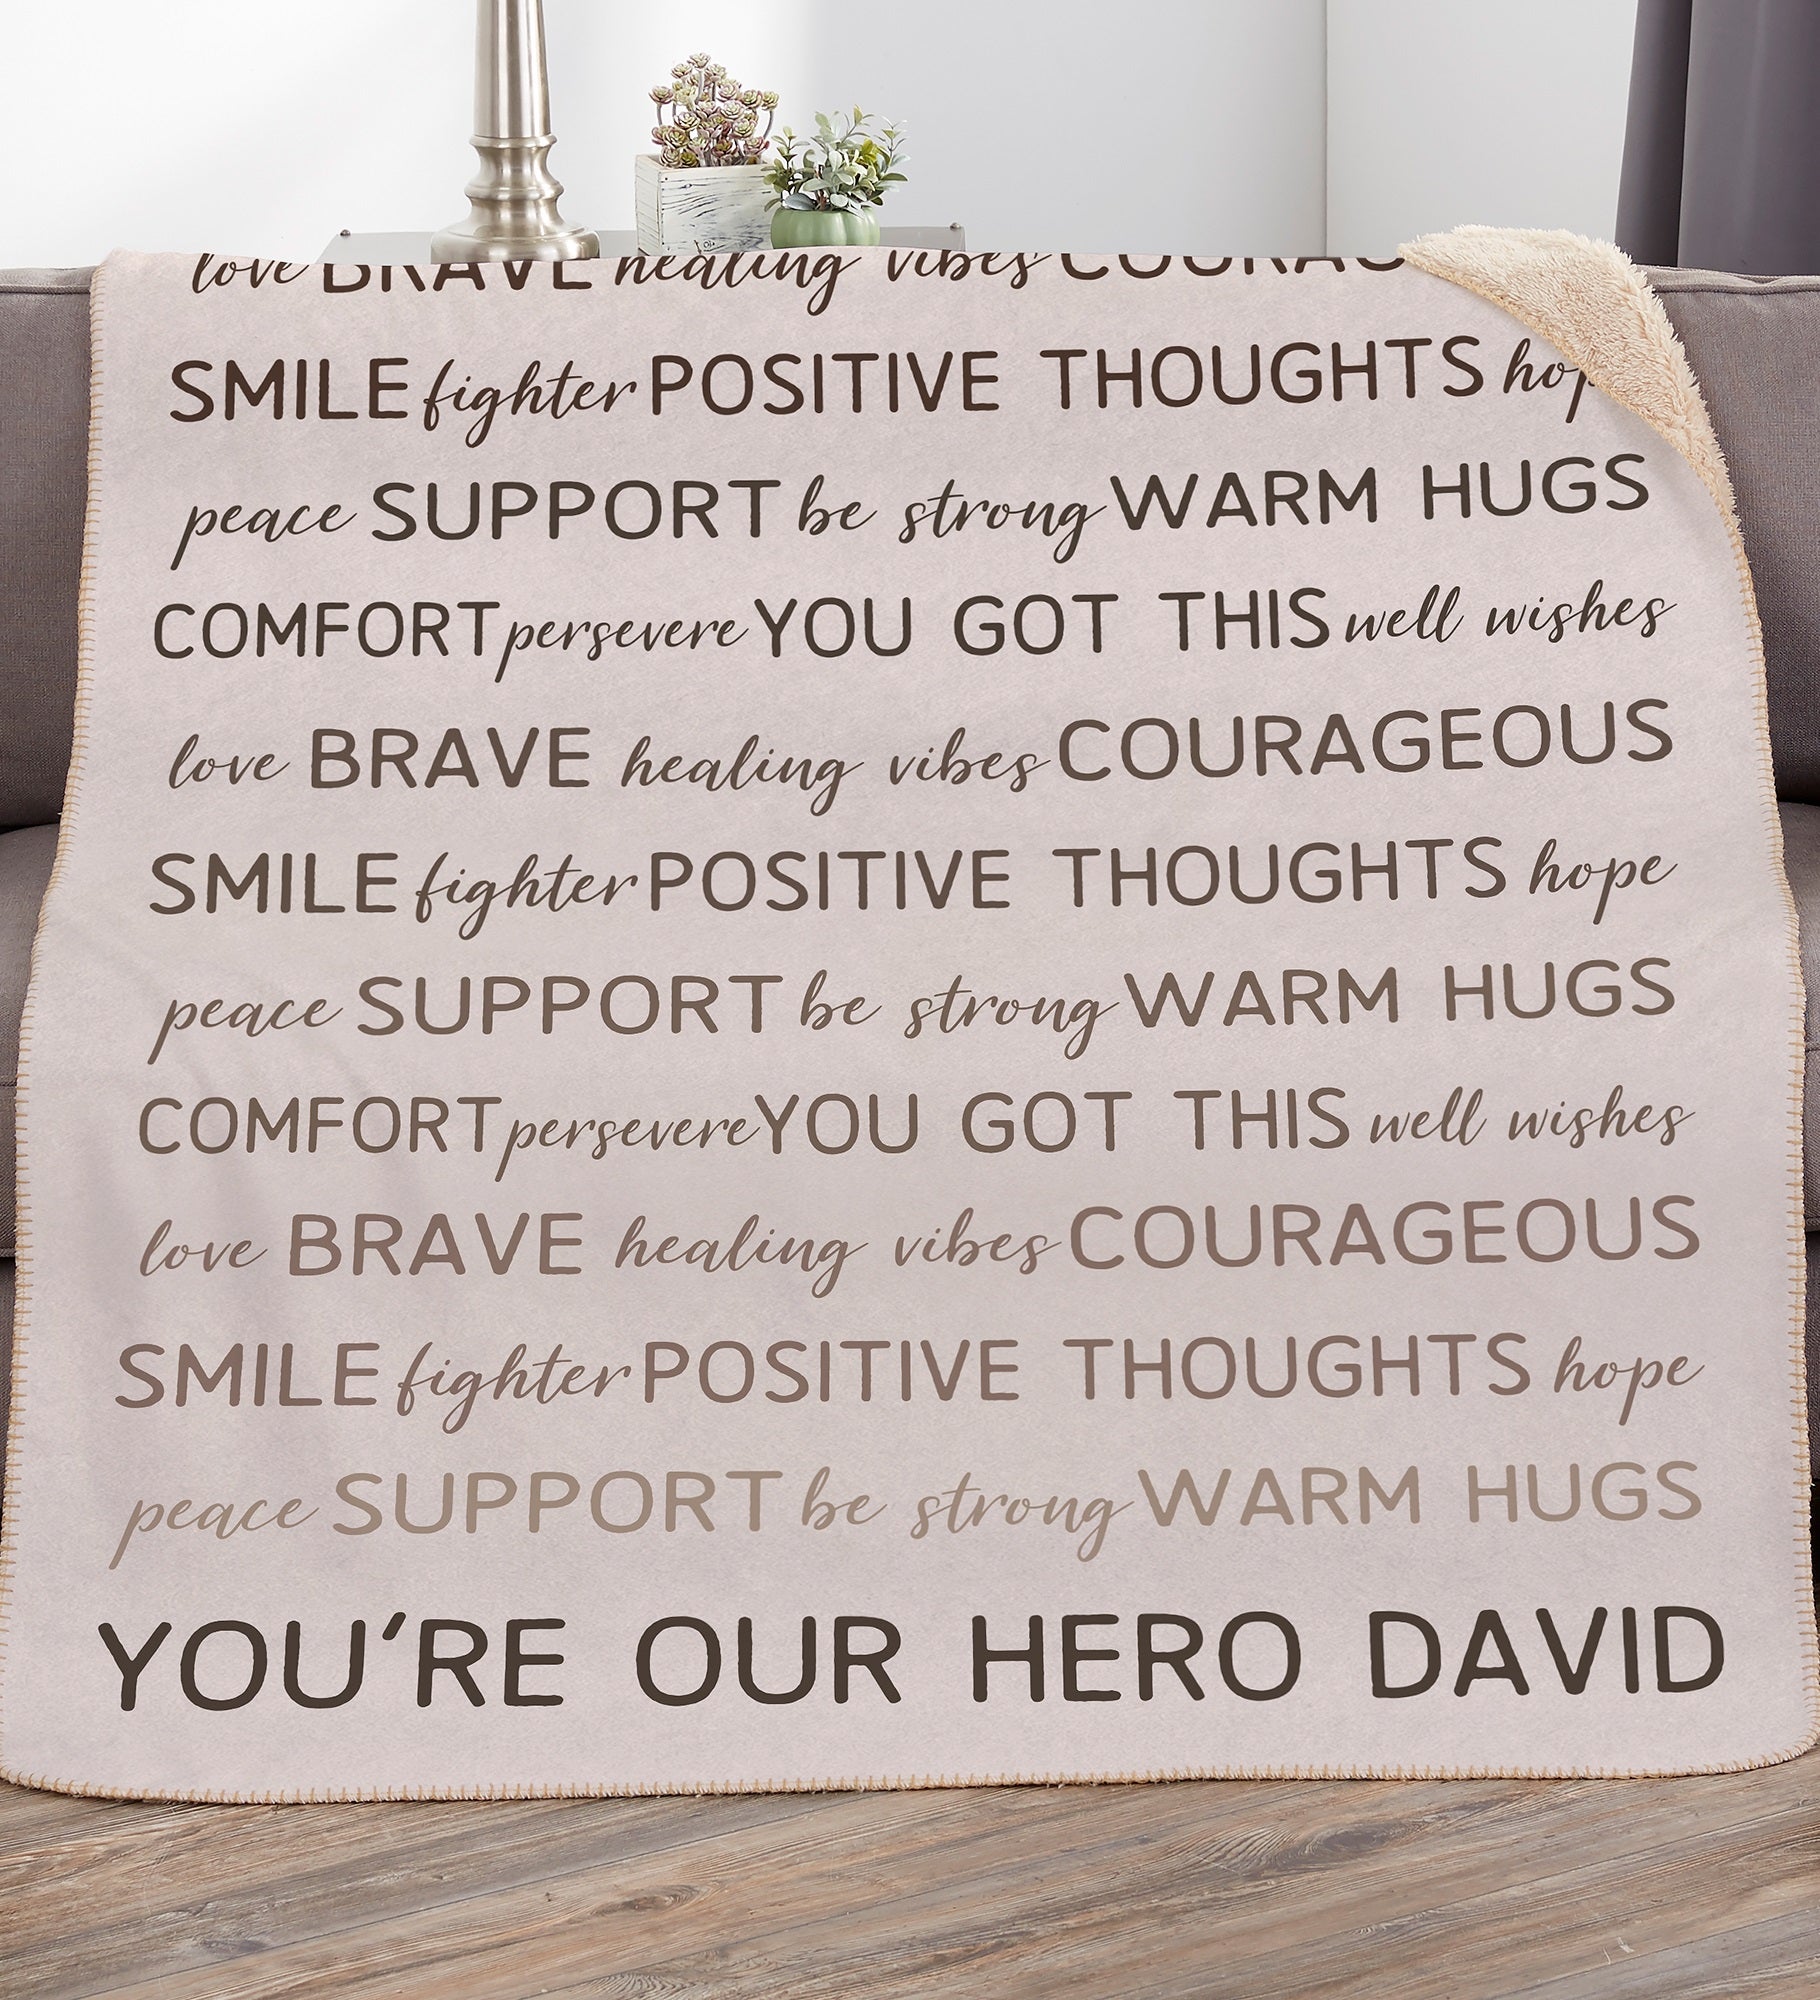 love BRAVE healing vibes
SMILE fighter POSITIVE THOUGHTS
peace SUPPORT be strong WARM HUGS
COMFORT persevere YOU GOT THIS well wishes
love BRAVE healing vibes COURAGEOUS
SMILE fighter POSITIVE THOUGHTS hope
peace SUPPORT be strong WARM HUGS
COMFORT persevere YOU GOT THIS well wishes
love BRAVE healing vibes COURAGEOUS
SMILE fighter POSITIVE THOUGHTS hope
peace SUPPORT be strong WARM HUGS
YOU'RE OUR HERO DAVID